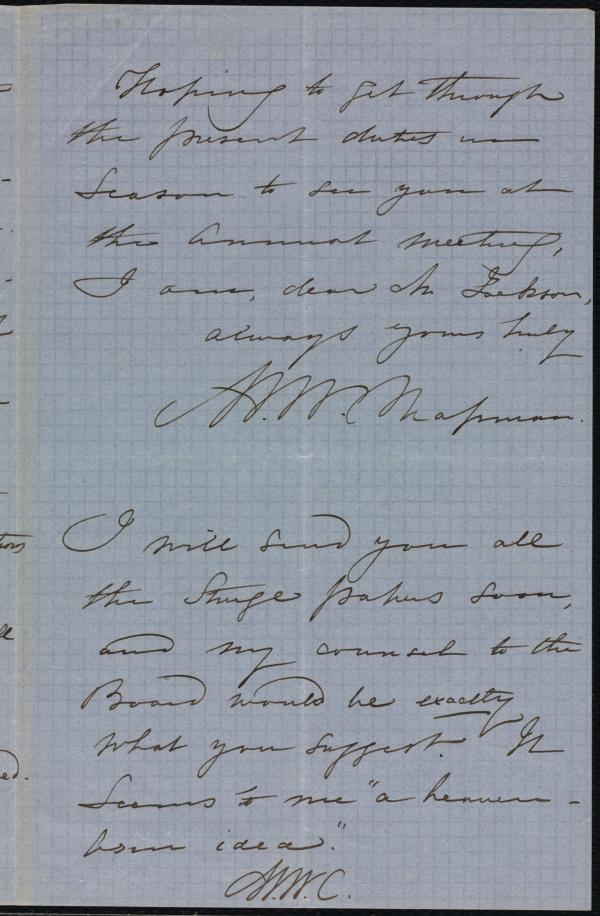 Hoping to get through
the present duties in
season to see you at
the Annual meeting,
I am, dear Mr Jackson,
always yours truly
M. W. Chapman.
I will send you all
the Sturge papers soon,
and my counsel to the
Board would be exactly
what you suggest. It
seems to me "a heaven-
born idea".
M. W. C.